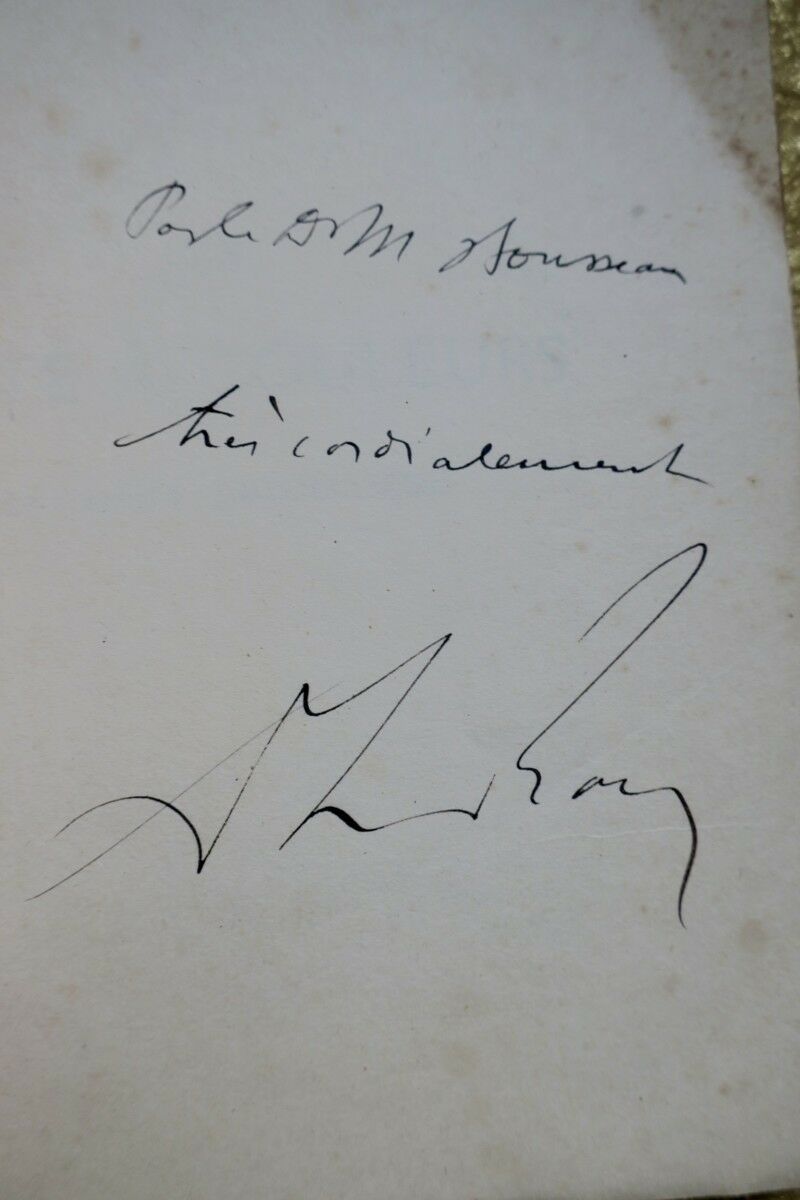 Pour le Dr M Rousseau
très cordialement
A Le Roy